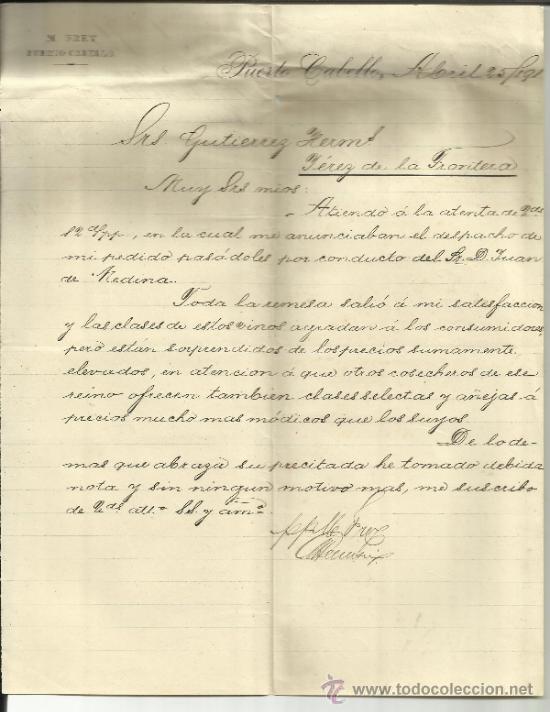 M FREY
PUERTO CABELLO
Puerto Cabello, Abril 25/191
Srs. Gutierrez Hermˢ
Jérez de la Frontera
Muy Srs mios:
Atiendo á la atenta de Vds
12 d/pp, en la cual me anunciaban el despacho de
mi pedido pasádoles por conducto del Sr. D. Juan
de Medina.
Toda la remesa salió á mi satisfaccion
y las clases de estos vinos agradan á los consumidores,
pero están sorprendidos de los precios sumamente
elevados, en atencion á que otros cosecheros de ese
reino ofrecen tambien clases selectas y añejas á
precios mucho mas módicos que los suyos.
De lo de-
mas que abraza su precitada he tomado debida
nota y sin ningun motivo mas, me suscribo
de Vds. att.º SS. y amº.
todocoleccion
www.todocoleccion.net